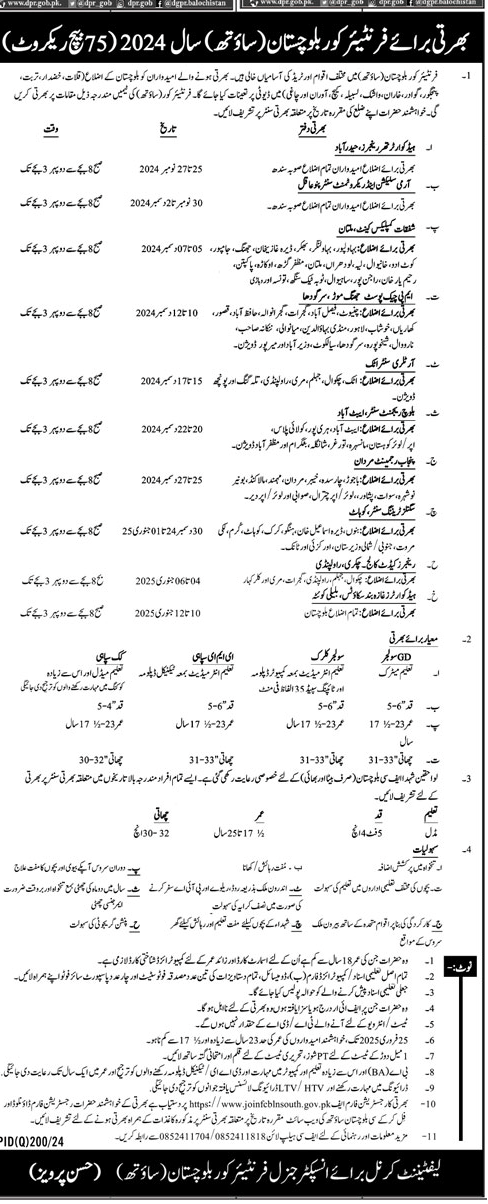 www.dpr.gob.pk. dpr_gob dpr.gob @dpr_gob @dgpr.balochistan
بھرتی برائے فرنٹیئر کور بلوچستان (ساؤتھ) سال 2024 (75 بیچ ریکروٹ)
1- فرنٹیئر کور بلوچستان (ساؤتھ) میں مختلف اقوام اور ٹریڈ کی آسامیاں خالی ہیں۔ بھرتی ہونے والے امیدواران کو بلوچستان کے اضلاع (قلات، خضدار، تربت،
پنجگور، گوادر، خاران، واشک، لسبیلہ، کیچ، آواران اور چاغی) میں ڈیوٹی پر تعینات کیا جائے گا۔ فرنٹیئر کور (ساؤتھ) کی ٹیمیں مندرجہ ذیل مقامات پر بھرتی کریں
گی۔ خواہشمند حضرات اپنے ضلع کی مقررہ تاریخ پر متعلقہ بھرتی سنٹر پر تشریف لائیں۔
بھرتی دفتر تاریخ وقت
ا۔ ہیڈ کوارٹر تھر رینجرز، حیدرآباد
بھرتی برائے اضلاع امیدواران تمام اضلاع صوبہ سندھ 25 تا 27 نومبر 2024 صبح 8 بجے سے دوپہر 3 بجے تک
ب۔ آرمی سلیکشن اینڈ ریکروٹمنٹ سنٹر پنو عاقل
بھرتی برائے اضلاع امیدواران تمام اضلاع صوبہ سندھ۔ 30 نومبر تا 2 دسمبر 2024 صبح 8 بجے سے دوپہر 3 بجے تک
پ۔ شفقات کمپلیکس کینٹ، ملتان
بھرتی برائے اضلاع: بہاولپور، بہاولنگر، بھکر، ڈیرہ غازیخان، جھنگ، جامپور، 05 تا 07 دسمبر 2024 صبح 8 بجے سے دوپہر 3 بجے تک
کوٹ ادو، خانیوال، لیہ، لودھراں، ملتان، مظفر گڑھ، اوکاڑہ، پاکپتن،
رحیم یار خان، راجن پور، ساہیوال، ٹوبہ ٹیک سنگھ، تونسہ اور وہاڑی
ت۔ ایم پی چیک پوسٹ جھنگ موڑ، سرگودھا
بھرتی برائے اضلاع: چنیوٹ، فیصل آباد، گجرات، گجرانوالہ، حافظ آباد، قصور، 10 تا 12 دسمبر 2024 صبح 8 بجے سے دوپہر 3 بجے تک
کھاریاں، خوشاب، لاہور، منڈی بہاؤالدین، میانوالی، ننکانہ صاحب،
نارووال، شیخوپورہ، سرگودھا، سیالکوٹ، وزیر آباد اور میر پور ڈویژن۔
ٹ۔ آرٹلری سنٹر اٹک
بھرتی برائے اضلاع: اٹک، چکوال، جہلم، مری، راولپنڈی، تلہ گنگ اور پونچھ 15 تا 17 دسمبر 2024 صبح 8 بجے سے دوپہر 3 بجے تک
ڈویژن۔
ث۔ بلوچ رجمنٹ سنٹر، ایبٹ آباد
بھرتی برائے اضلاع: ایبٹ آباد، ہری پور، کولائی پلاس، 20 تا 22 دسمبر 2024 صبح 8 بجے سے دوپہر 3 بجے تک
اپر/لوئر کوہستان، مانسہرہ، تورغر، شانگلہ، بٹگرام اور مظفر آباد ڈویژن۔
ج۔ پنجاب رجمنٹ مردان
بھرتی برائے اضلاع: باجوڑ، چارسدہ، خیبر، مردان، مہمند، مالاکنڈ، بونیر 25 تا 27 دسمبر 2024 صبح 8 بجے سے دوپہر 3 بجے تک
نوشہرہ، سوات، پشاور، لوئر/اپر چترال، صوابی اور لوئر/اپر دیر۔
چ۔ سگنلز ٹریننگ سنٹر، کوہاٹ
بھرتی برائے اضلاع: بنوں، ڈیرہ اسماعیل خان، ہنگو، کرک، کوہاٹ، کرم، لکی 30 دسمبر 24 تا 01 جنوری 25 صبح 8 بجے سے دوپہر 3 بجے تک
مروت، جنوبی/شمالی وزیرستان، اورکزئی اور ٹانک۔
ح۔ رینجرز کیڈٹ کالج، چکری، راولپنڈی
بھرتی برائے اضلاع: چکوال، جہلم، راولپنڈی، گجرات، مری اور کلر کہار 04 تا 06 جنوری 2025 صبح 8 بجے سے دوپہر 3 بجے تک
خ۔ ہیڈ کوارٹرز غازہ بند سکاؤٹس، بلیلی کوئٹہ
بھرتی برائے اضلاع: تمام اضلاع بلوچستان 10 تا 12 جنوری 2025 صبح 8 بجے سے دوپہر 3 بجے تک
2- معیار برائے بھرتی
GD سولجر سولجر کلرک ای ایم ای سپاہی کک سپاہی
ا۔ تعلیم میٹرک تعلیم انٹرمیڈیٹ بمعہ کمپیوٹر ڈپلومہ تعلیم انٹر میڈیٹ بمعہ ٹیکنیکل ڈپلومہ تعلیم مڈل اور اس سے زیادہ
اور ٹائپنگ سپیڈ 35 الفاظ فی منٹ کوکنگ میں مہارت رکھنے والوں کو ترجیح دی جائیگی
ب۔ قد "6-5 قد "6-5 قد "6-5 قد "4-5
پ۔ عمر 23-½ 17 عمر 23-½ 17 سال عمر 23-½ 17 سال عمر 23-½ 17 سال
سال
ت۔ چھاتی "33-31 چھاتی "33-31 چھاتی "33-31 چھاتی "32-30
3- لواحقین شہدا ایف سی بلوچستان (صرف بیٹا اور بھائی) کے لئے خصوصی رعایت رکھی گئی ہے۔ ایسے تمام افراد مندرجہ بالا تاریخوں میں متعلقہ بھرتی سنٹر پر بھرتی
کے لئے تشریف لائیں۔
تعلیم قد عمر چھاتی
مڈل 5 فٹ 4 انچ ½ 17 تا 25 سال 32 -30 انچ
4- سہولیات
ا۔ تنخواہ میں پرکشش اضافہ ب۔ مفت رہائش/کھانا پ۔ دوران سروس آپکے بیوی اور بچوں کا مفت علاج
ت۔ بچوں کی مختلف تعلیمی اداروں میں تعلیم کی سہولت ٹ۔ اندرون ملک بذریعہ روڈ، ریلوے اور پی آئی اے سفر کرنے ث۔ سال میں دو ماہ کی چھٹی بمع تنخواہ اور بوقت ضرورت
کی صورت میں نصف کرایہ کی سہولت ایمرجنسی چھٹی
ج۔ کارکردگی کی بنا پر اقوام متحدہ کے ساتھ بیرون ملک چ۔ شہداء کے بچوں کیلئے مفت تعلیم اور رہائش کیلئے گھر ح۔ پنشن گریجویٹی کی سہولت
سروس کے مواقع
نوٹ:-
1- وہ حضرات جن کی عمر 18 سال سے کم ہے اُن کے لئے اسمارٹ کارڈ اور زائد عمر کے لئے کمپیوٹرائزڈ شناختی کارڈ لازمی ہے۔
2- تمام اصل تعلیمی اسناد/کمپیوٹرائزڈ فارم (ب)، ڈومیسائل، تمام دستاویزات کی تین عدد مصدقہ فوٹو سٹیٹ اور چار عدد پاسپورٹ سائز فوٹو اپنے ہمراہ لائیں۔
3- جعلی تعلیمی اسناد پیش کرنے والے کو حوالہ پولیس کیا جائے گا۔
4- وہ حضرات جن پر ایف آئی آر درج ہو یا سزا یافتہ ہوں وہ بھرتی کے لئے نااہل ہوگا۔
5- ٹیسٹ/انٹرویو کے لئے آنے والے ٹی اے/ڈی اے کے حقدار نہیں ہوں گے۔
6- 25 فروری 2025 تک، خواہشمند امیدواروں کی عمر کی حد 23 سال سے زیادہ اور ½ 17 سے کم نہ ہو۔
7- 1 میل دوڑ کے ٹیسٹ کے لئے PT شوز، تحریری ٹیسٹ کے لئے قلم اور امتحانی گتہ ساتھ لائیں۔
8- بی اے (BA) اور اس سے زیادہ تعلیم اور کمپیوٹر میں مہارت اور ڈی اے ای/ٹیکنیکل ڈپلومہ رکھنے والوں کو ترجیح اور عمر میں ایک سال تک رعایت دی جائیگی۔
9- ڈرائیونگ میں مہارت رکھنے اور LTV/ HTV ڈرائیونگ لائسنس یافتہ جوانوں کو ترجیح دی جائیگی۔
10- بھرتی کا رجسٹریشن فارم ایف https://www.joinfcblnsouth.gov.pk پر دستیاب ہے بھرتی کے خواہشمند حضرات رجسٹریشن فارم ڈاؤنلوڈ اور
فل کر کے سی بلوچستان ساؤتھ کی ویب سائٹ مقررہ تاریخ پر متعلقہ بھرتی سنٹر پر مذکورہ کاغذات کے ہمراہ بھرتی ہونے کے لئے تشریف لائیں۔
11- مزید معلومات اور رہنمائی کے لئے ایف سی ہیلپ لائن 0852411704/0852411818 سے رابطہ کریں۔
PID(Q)200/24
لیفٹیننٹ کرنل برائے انسپکٹر جنرل فرنٹیئر کور بلوچستان (ساؤتھ) (حسن پرویز)